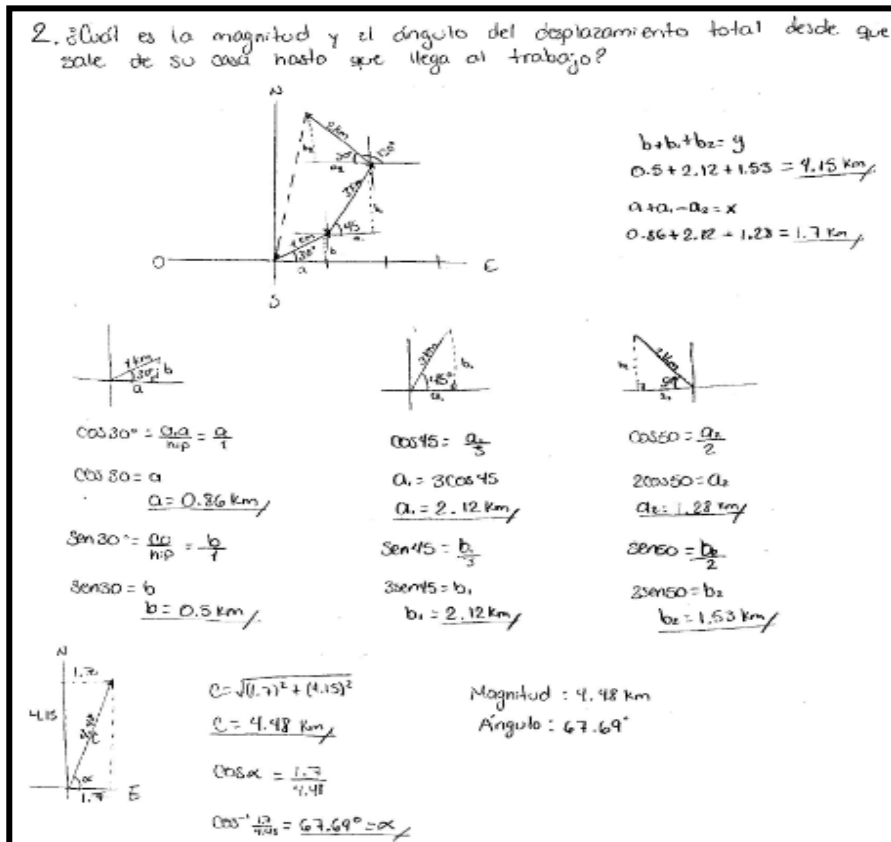 2. ¿Cuál es la magnitud y el ángulo del desplazamiento total desde que
sale de su casa hasta que llega al trabajo?
N
2 km
a2
3 km
45
a1
1 km
30°
b
a
O
E
S
b+b1+b2=y
0.5+2.12+1.53=4.15 km
a+a1-a2=x
0.86+2.12-1.28=1.7 km
1 km
30°
b
a
3 km
45°
b1
a1
2 km
50°
cos30°=ca/hip=a/1
cos30=a
a=0.86 km
sen30°=co/hip=b/1
sen30=b
b=0.5 km
cos45=a1/3
a1=3cos45
a1=2.12 km
sen45=b1/3
3sen45=b1
b1=2.12 km
cos50=a2/2
2cos50=a2
a2=1.28 km
sen50=b2/2
2sen50=b2
b2=1.53 km
N
1.7
4.15
α
1.7
E
C=√(1.7)²+(4.15)²
C=4.48 km
cosα=1.7/4.48
cos⁻¹ 1.7/4.48=67.69°=α
Magnitud: 4.48 km
Ángulo: 67.69°